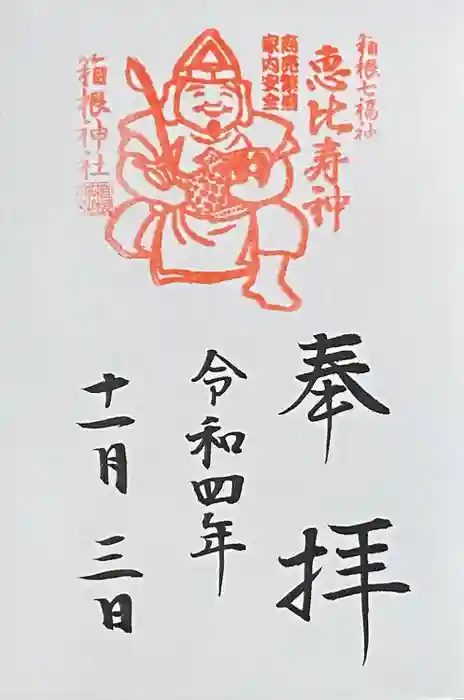 箱根七福神
恵比寿神
商売繁昌
家内安全
箱根神社
奉拝
令和四年
十一月三日